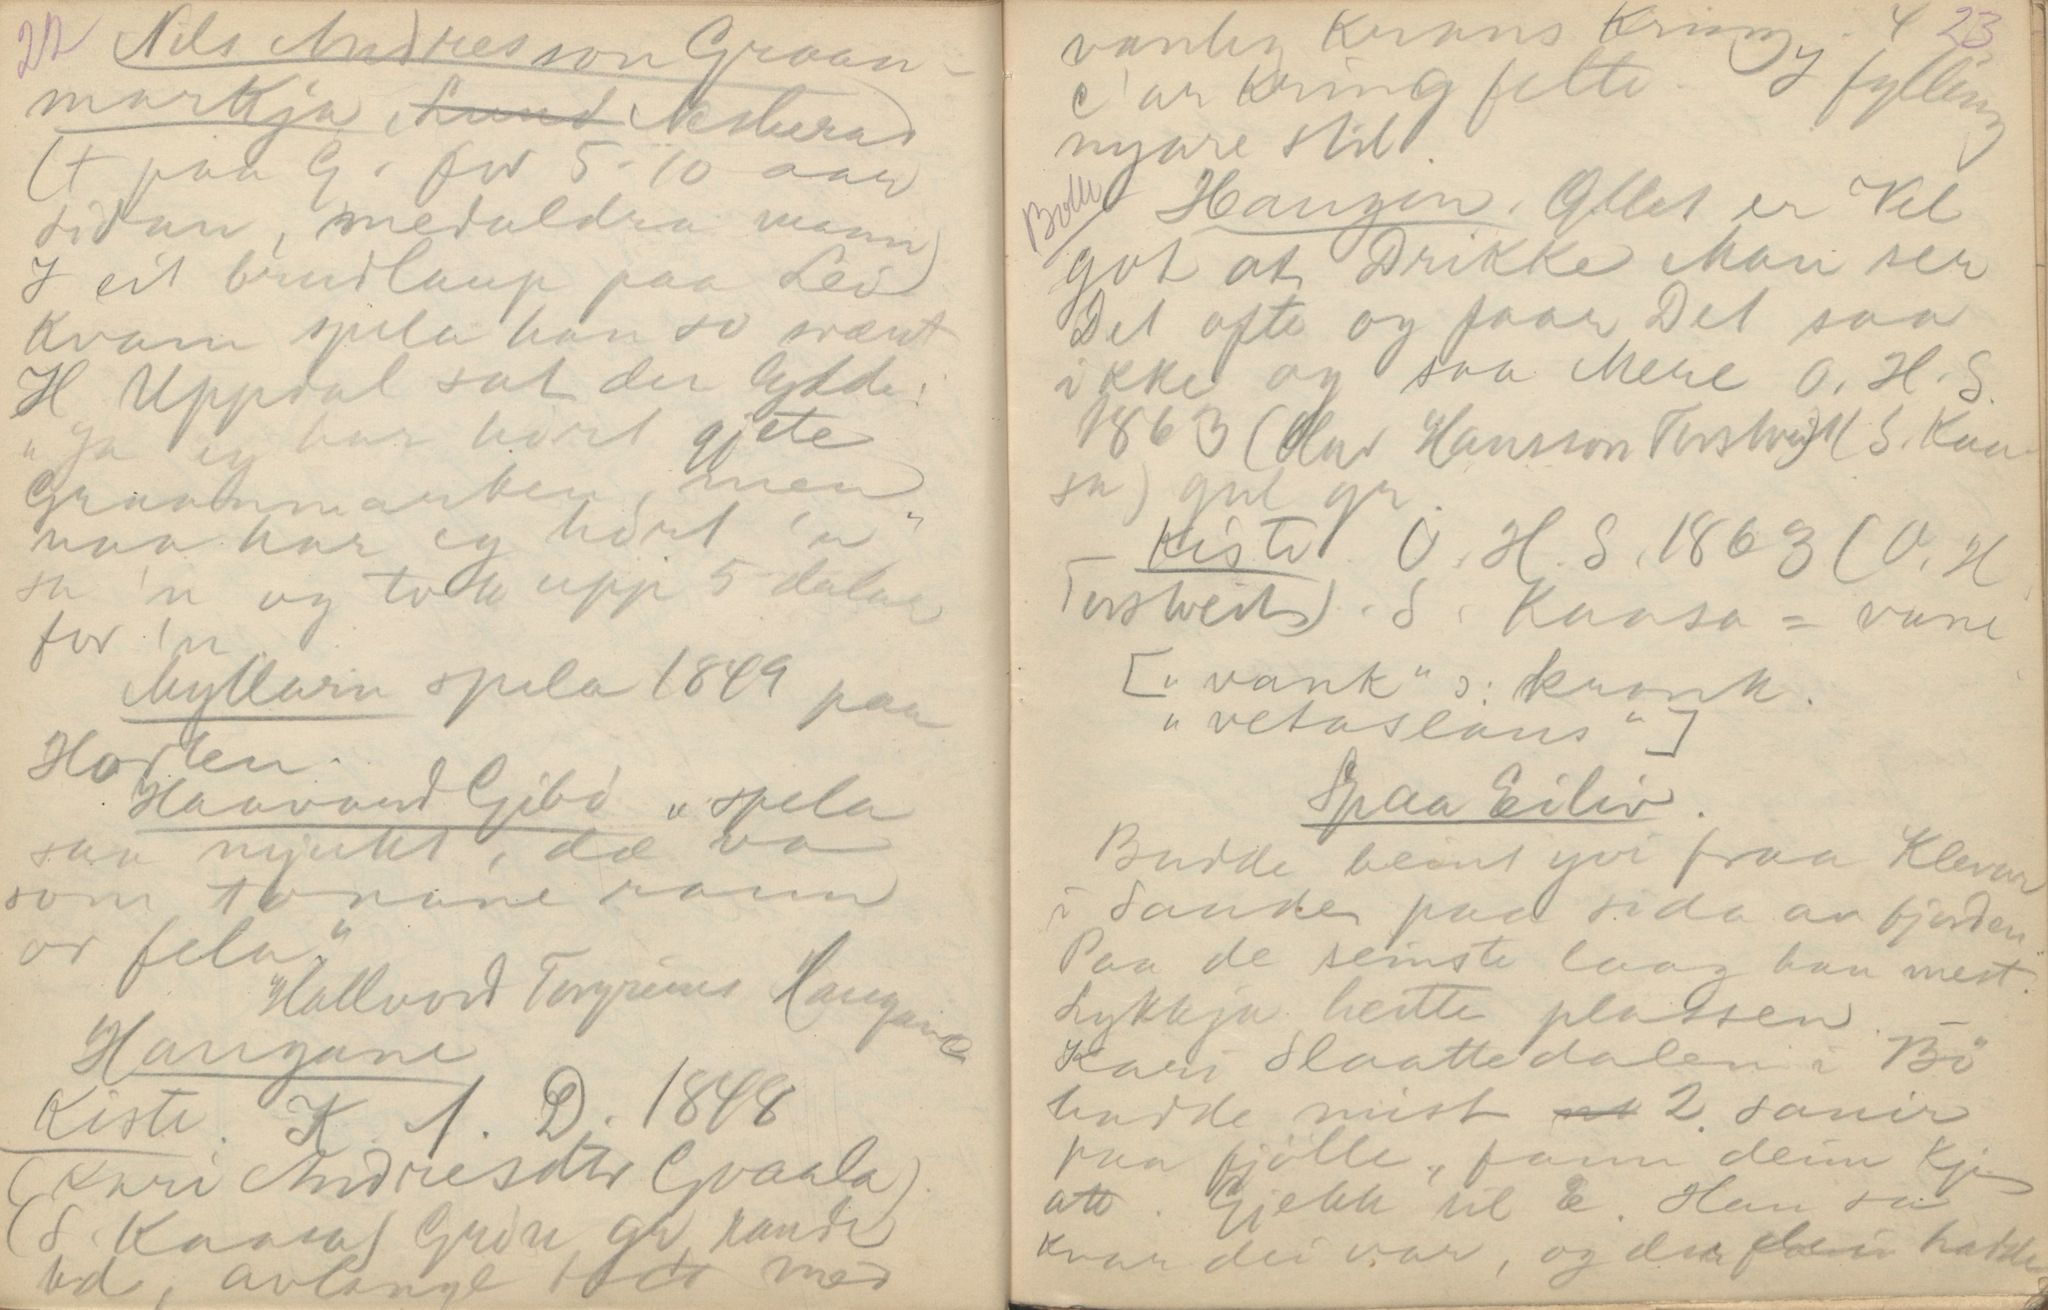 22
Nils Andresson Graan-
markja, Lund Nesherad
(† paa G. for 5-10 aar
sidan, medaldra mann)
I eit brudlaup paa Lei
Kvam spela han so vænt
H Uppdal sat der lydde:
"Ja eg har hört gjete
Graanmarken, men
naa har eg hört 'n"
sa 'n og tok upp 5 dalar
for 'n
Myllarn spela 1849 paa
Horten.
Haavard Gibö "spela
saa mjukt, dæ va
som tonane rann
or fela"
Hallvord Torgrims Haugane
Haugane
Kiste. K. A. D. 1848
(Kari Andresdtr Gvaala)
(S. Kaasa) Grön gr, raude
bd, avlange med
23
vanleg Krans Kring. 4
c'ar kring felte. I fylling
nyare stil.
Bolle
Haugen. Ollet er Vel
got at Drikke Man ser
Det ofte og faar Det saa
ikke og saa Mere O. H. S.
1863 (Olav Hansson Torstveit) (S. Kaa-
sa) gul gr.
– Kiste. O. H. S. 1863 (O. H
Torstveit). S. Kaasa =
["vank" ɔ: krank.
"vetaslaus"]
Spaa Eiliv.
Budde beint yvi fraa Klevar
i Sauder paa sida av fjorden
Paa de seinste laag han mest.
Lykkja heitte plassen.
Kari Slaattedalen i Bö
hadde mist 2 sauir
paa fjölle, fann deim kji
att. Gjekk til E. Han sa
kvar dei var, og der hadde